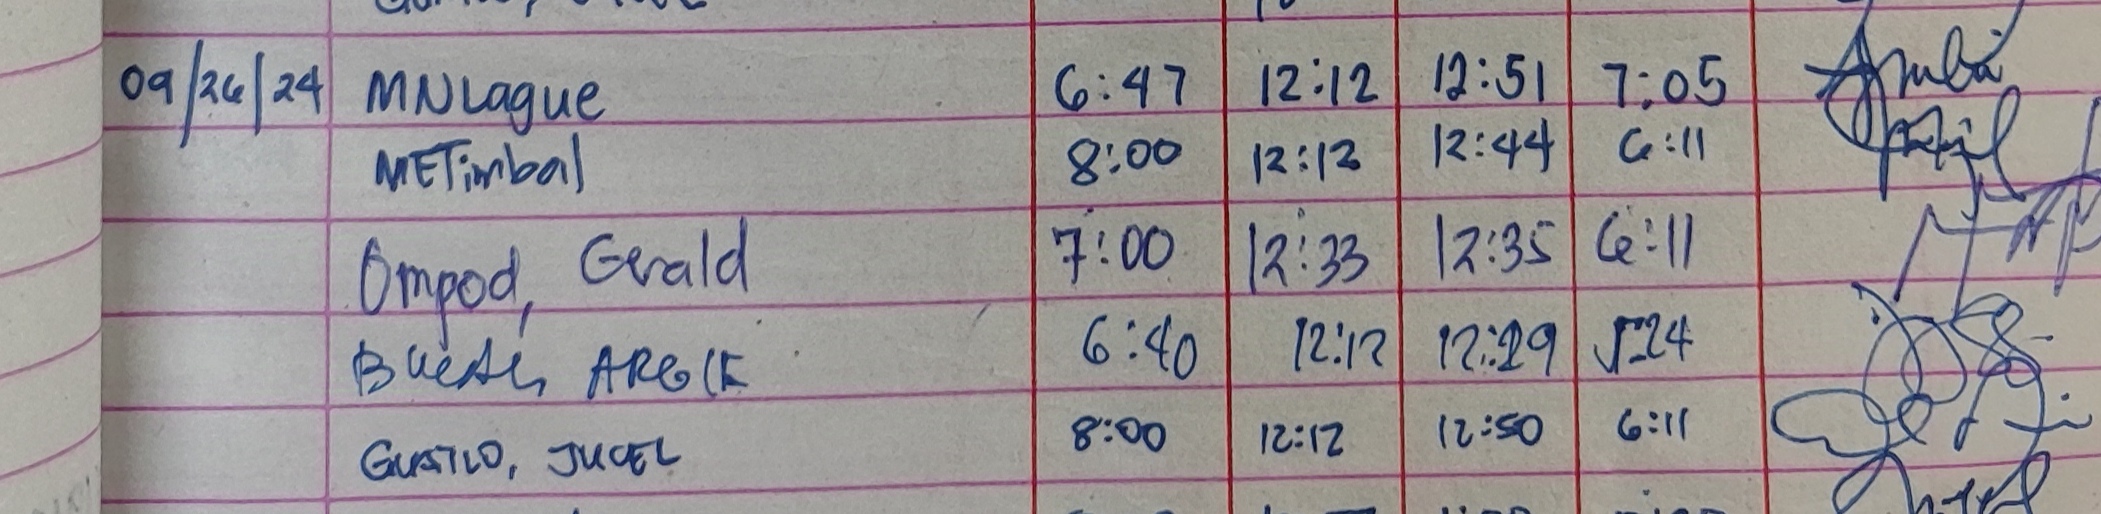 09/26/24 MNLague 6:47 12:12 12:51 7:05
METimbal 8:00 12:12 12:44 6:11
Ompod, Gerald 7:00 12:33 12:35 6:11
6:40 12:12 12:29 5:24
GUSTILO, JUCEL 8:00 12:12 12:50 6:11